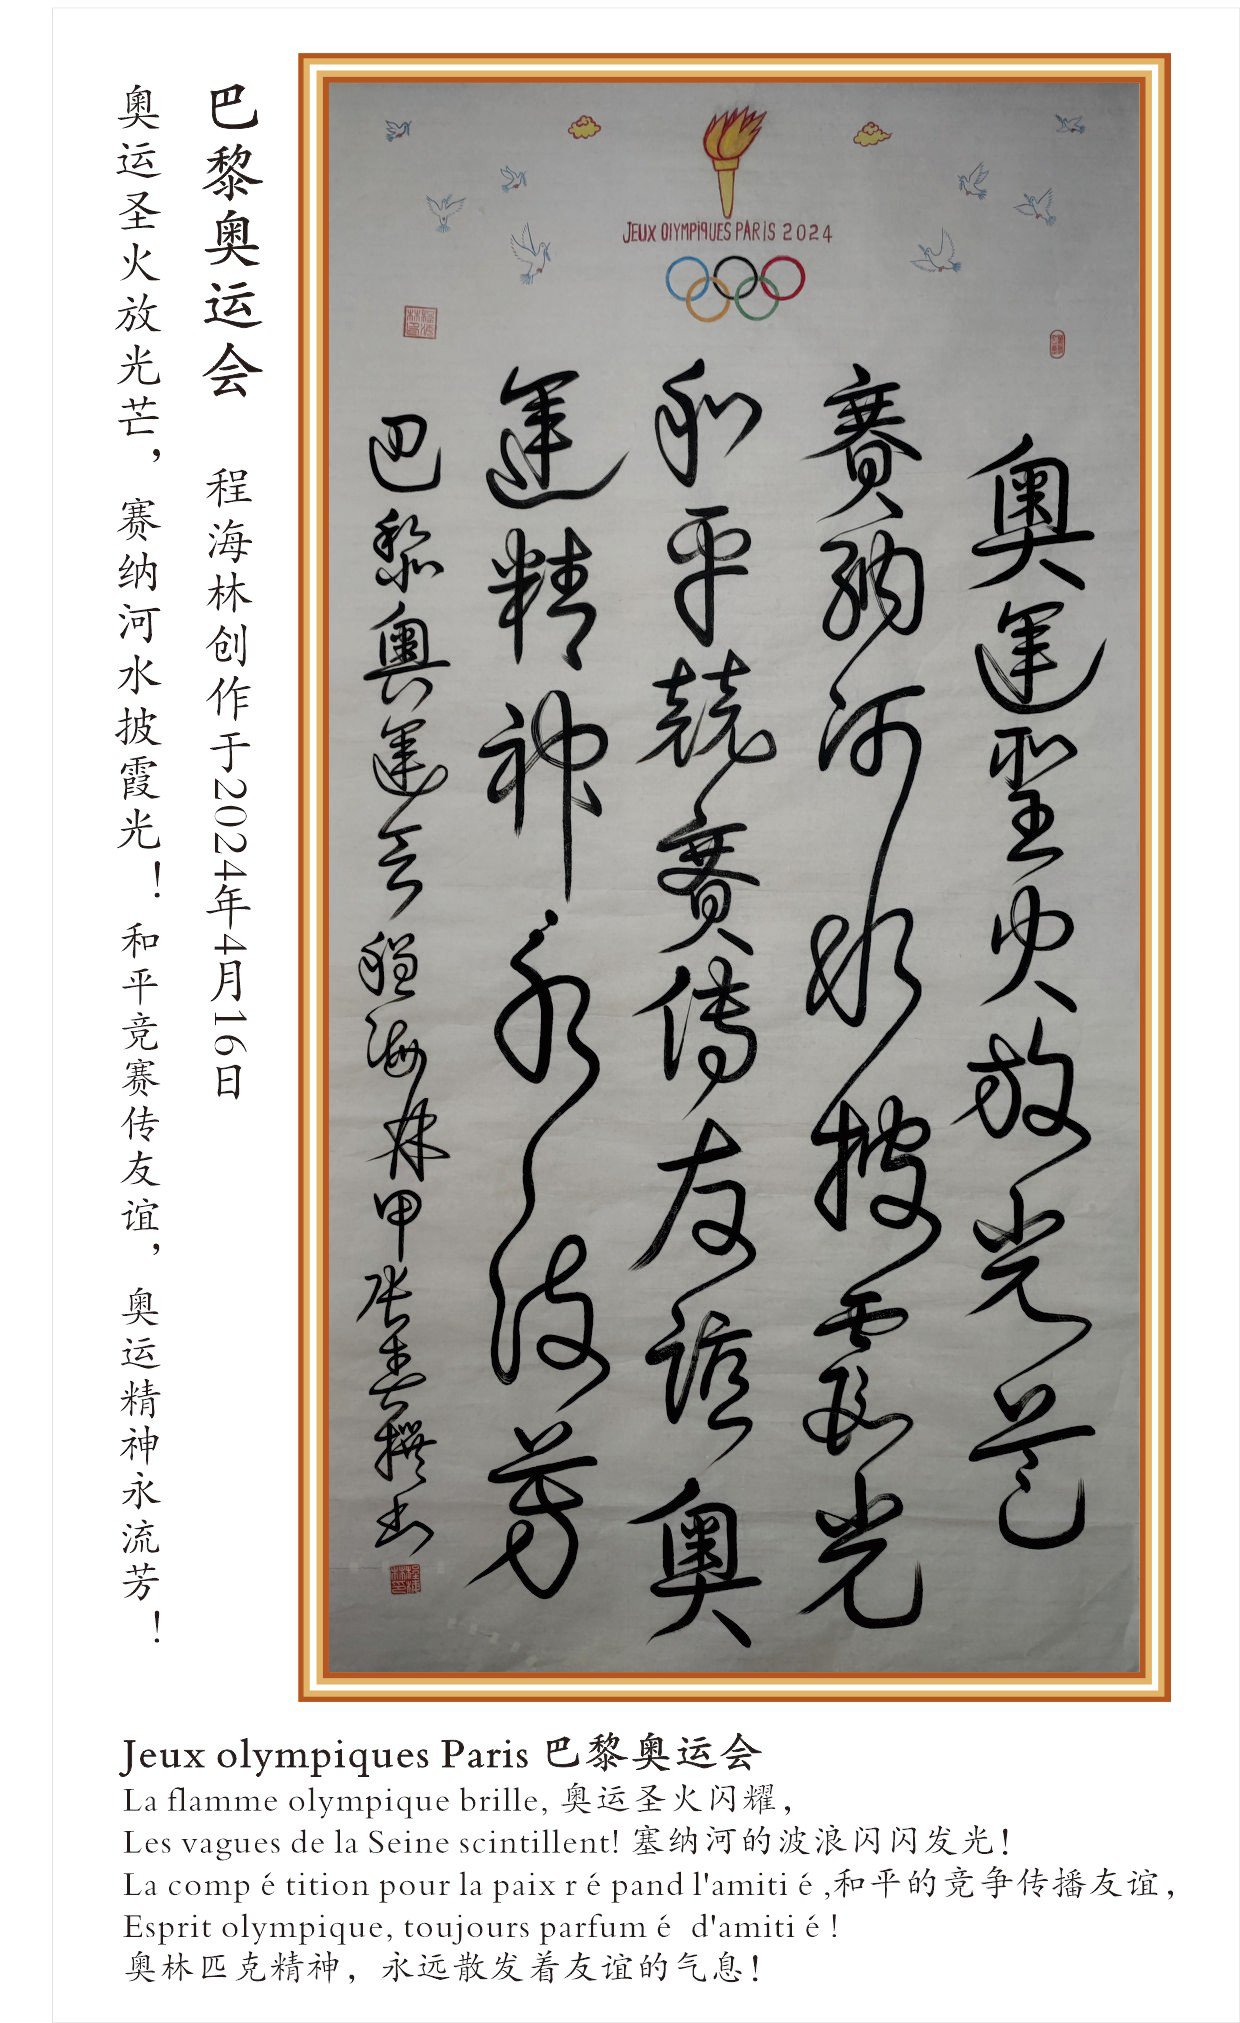 JEUX OlYMPiQUES PARiS 2024
奥運聖火放光芒
賽納河水披霞光
和平競賽傳友誼奥
運精神永流芳
巴黎奥運会 程海林甲辰春撰书
巴黎奥运会 程海林创作于2024年4月16日
奥运圣火放光芒，赛纳河水披霞光！和平竞赛传友谊，奥运精神永流芳！
Jeux olympiques Paris 巴黎奥运会
La flamme olympique brille, 奥运圣火闪耀，
Les vagues de la Seine scintillent! 塞纳河的波浪闪闪发光！
La comp é tition pour la paix r é pand l'amiti é ,和平的竞争传播友谊，
Esprit olympique, toujours parfum é d'amiti é !
奥林匹克精神，永远散发着友谊的气息！